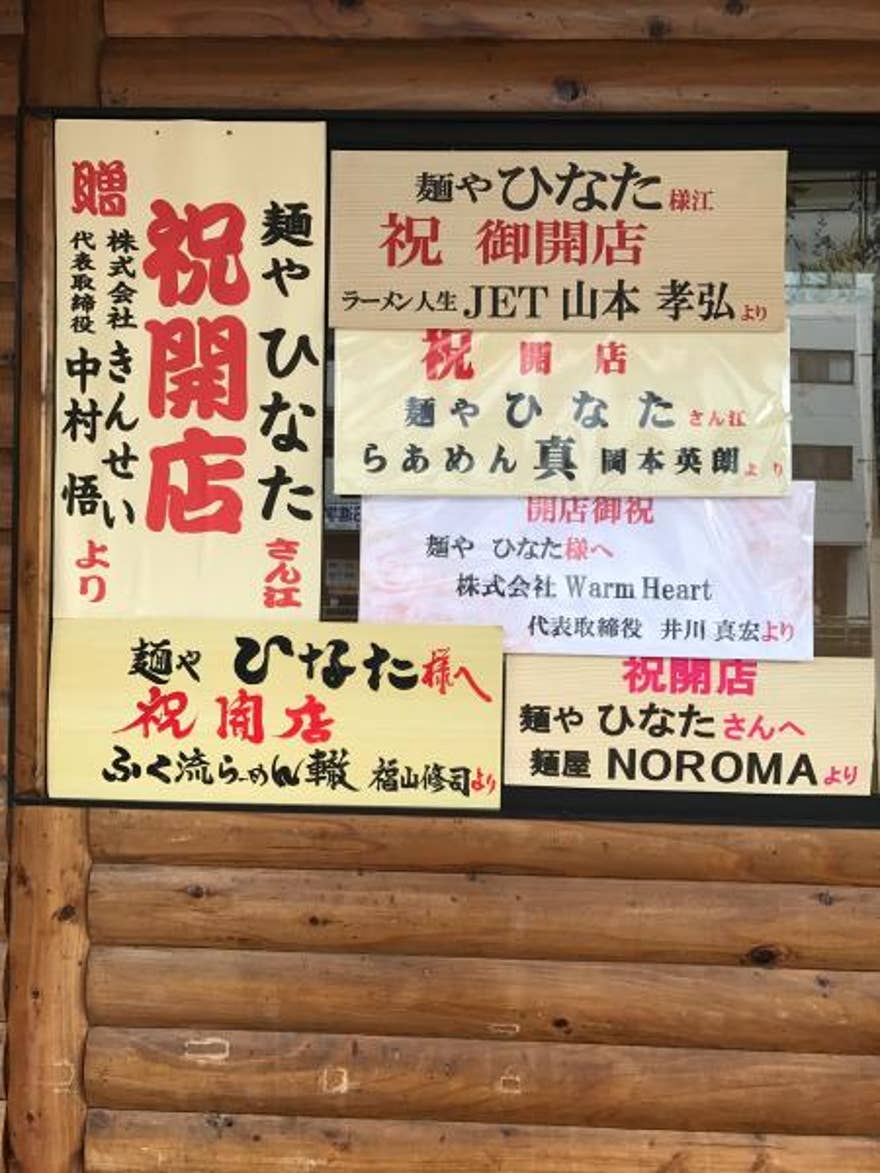 麺や ひなた さん江
祝開店
贈 株式会社 きんせい
代表取締役 中村 悟 より
麺や ひなた 様江
祝 御開店
ラーメン人生 JET 山本 孝弘 より
祝 開店
麺や ひなた さん江
らあめん 真 岡本英朗 より
開店御祝
麺や ひなた様へ
株式会社 Warm Heart
代表取締役 井川 真宏より
麺や ひなた様へ
祝開店
ふく流らーめん轍 福山修司より
祝開店
麺や ひなた さんへ
麺屋 NOROMA より